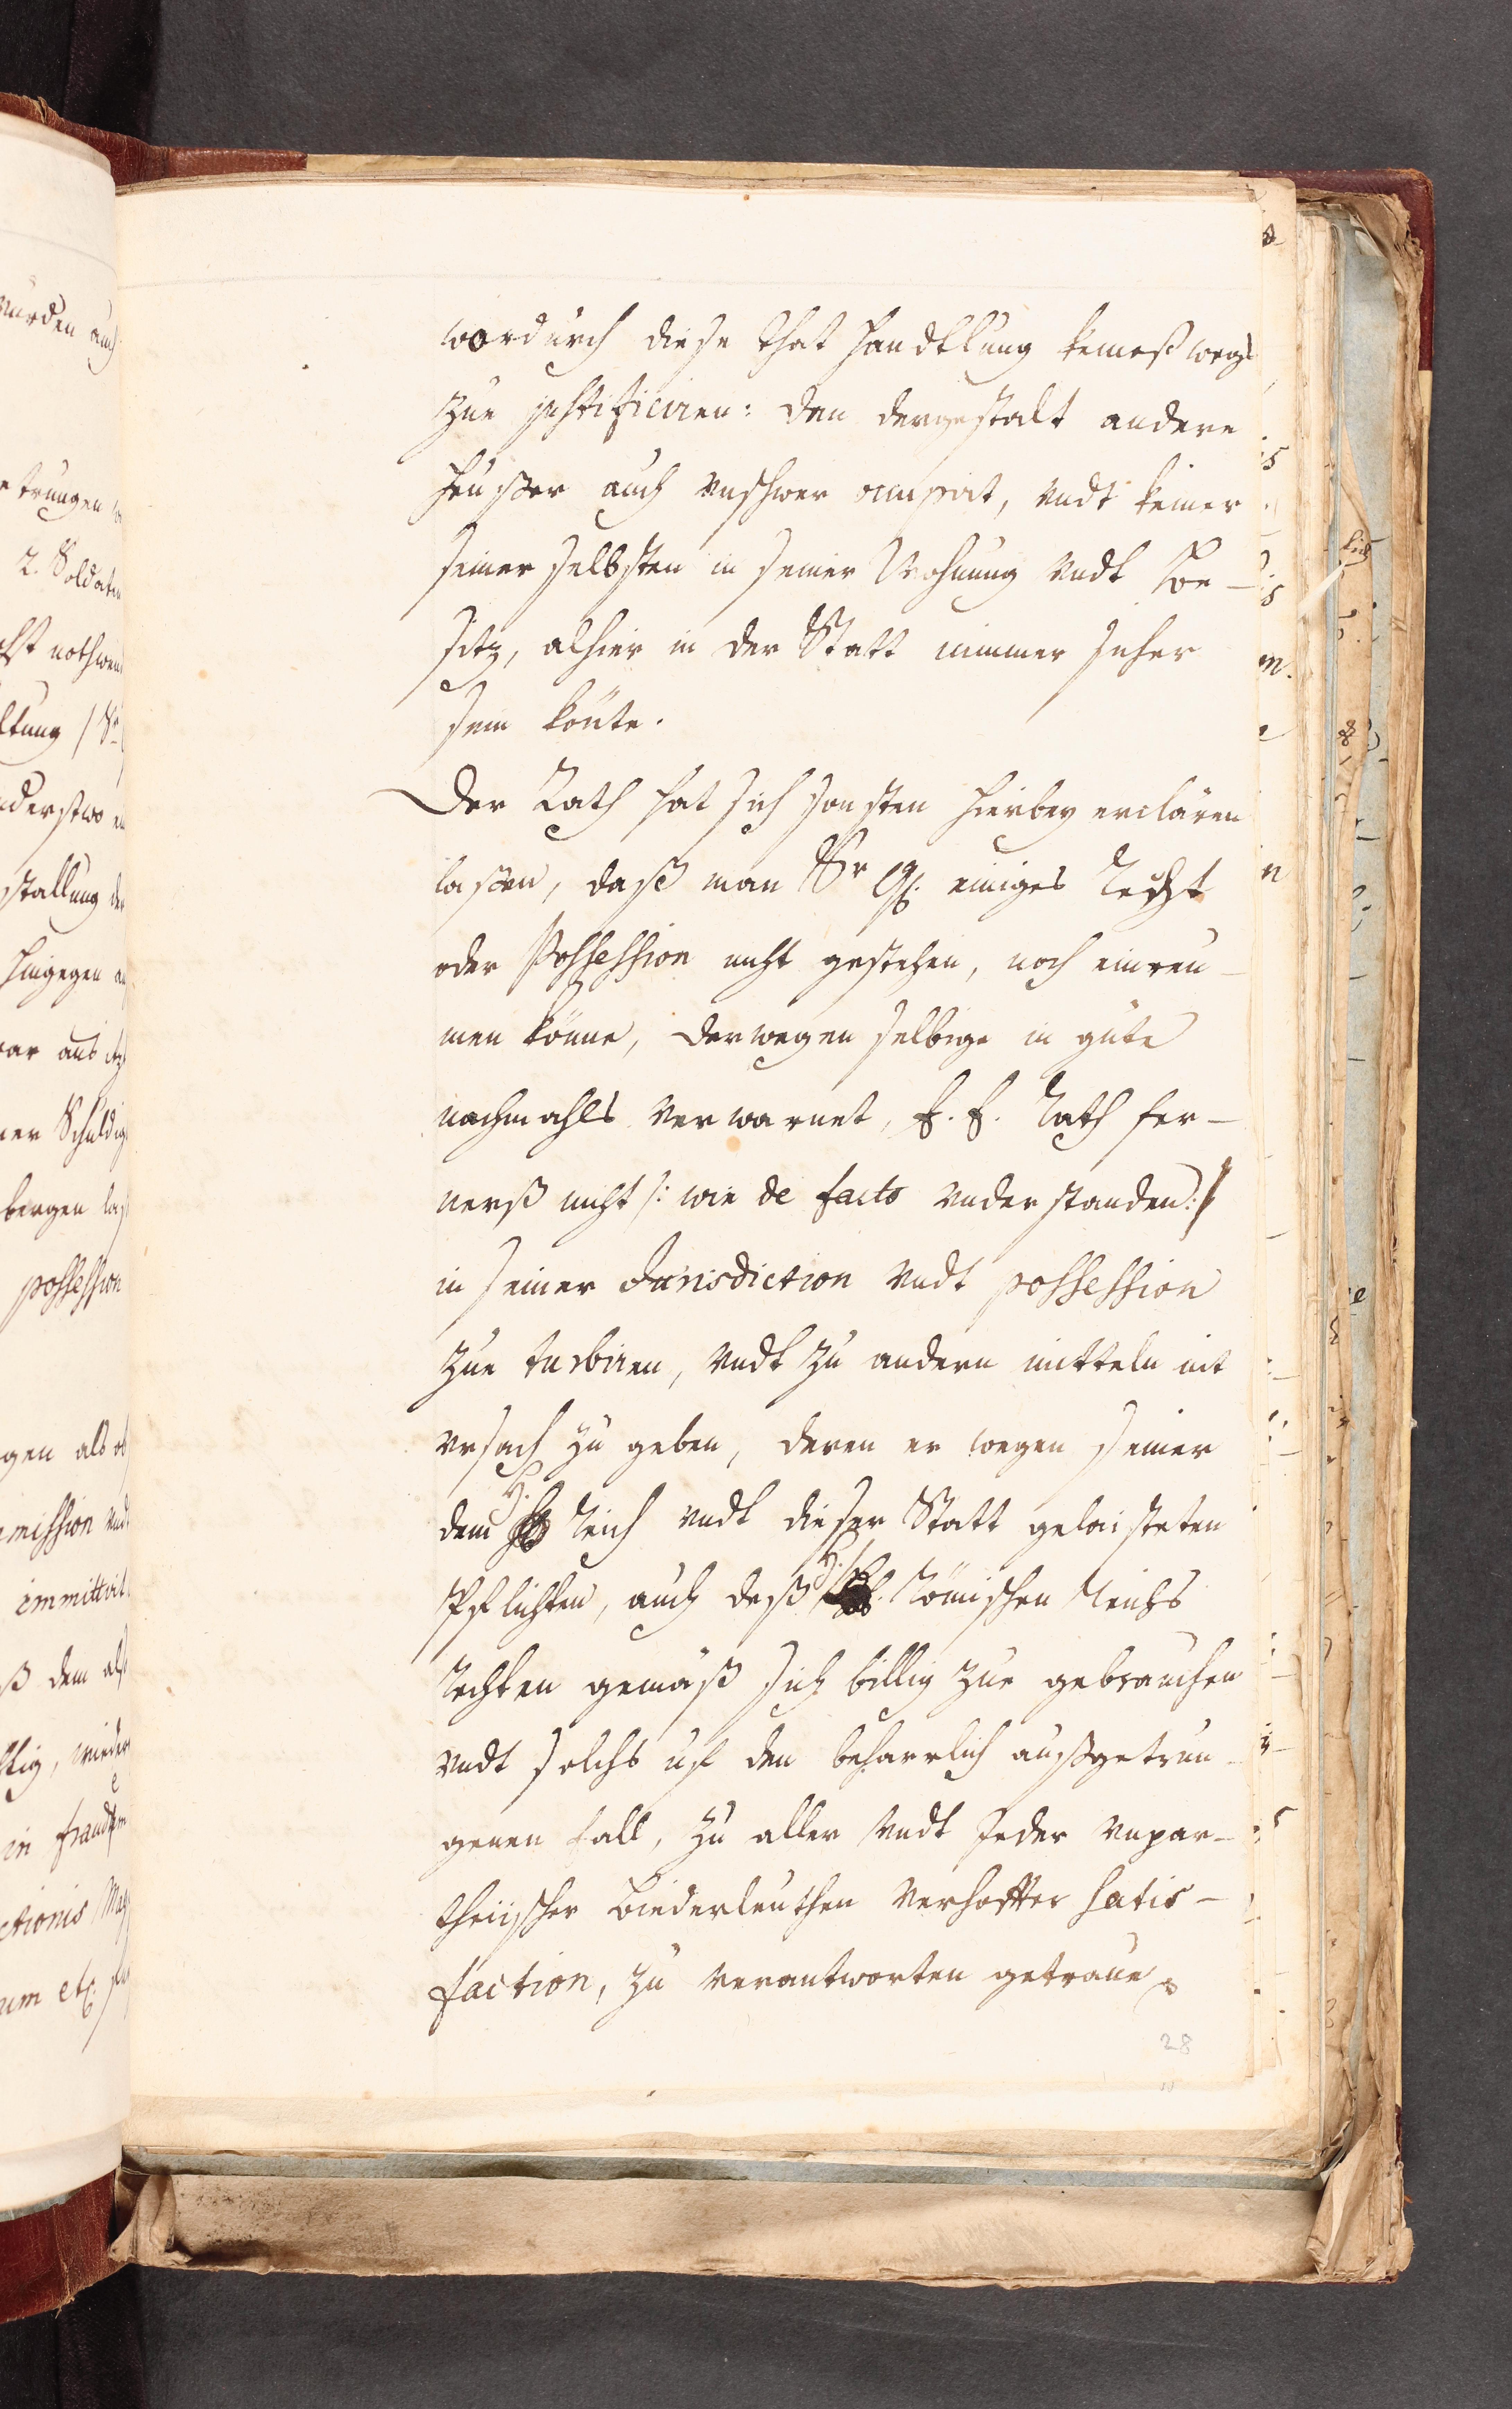 wordurch diese that handtlung keineßwegs
zue justificiren: den dergestalt andere
heußer auch vnschwer occupirt, vndt keiner
seiner selbsten in seiner Wohnung vndt Be-
sitz, alhier in der Statt nimmer sicher
sein könte.
Der Rath hat sich sonsten hierbey erclären
laßen, daß man Sr Gl. einiges Recht
oder Possession nicht gestehen, noch einreu-
men könne, derwegen selbige in güte
nachmahls verwarnet, E. E. Rath fer-
nerß nicht /: wie de facto vnderstanden :/
in seiner Jurisdiction vndt possession
zue turbiren, vndt zu andern mitteln nit
vrsach zu geben, deren er wegen seiner
dem H. Reich vndt dieser Statt gelaisteten
Pflichten, auch deß H. Römischen Reichs
Rechten gemäß sich billig zue gebrauchen
vndt solchs uf den beharrlich außgetrun-
genen fall, zu aller vndt Jeder vnpar-
theiischer Biederleuthen verhoffter satis-
faction, zu verantworten getraue
28